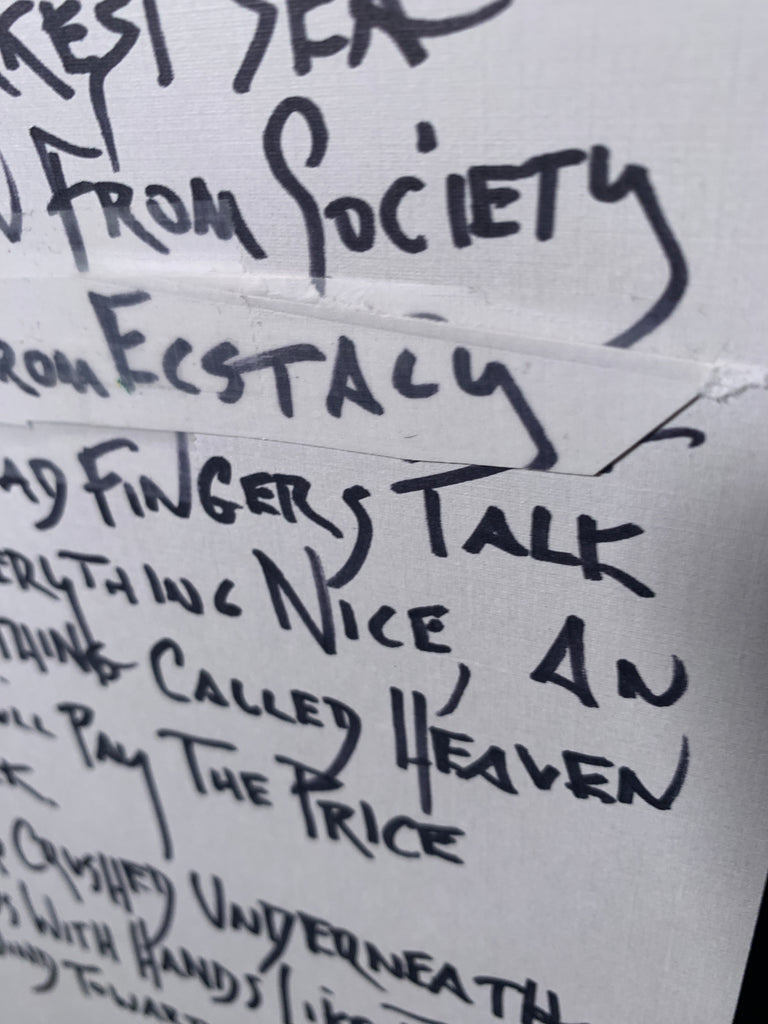 SEA
FROM SOCIETY
ROM ECSTACY
AD FINGERS TALK
ERYTHING NICE, AN
THING CALLED HEAVEN
LL PAY THE PRICE
K
CRUSHED UNDERNEATH
S WITH HANDS LIKE
TOWART